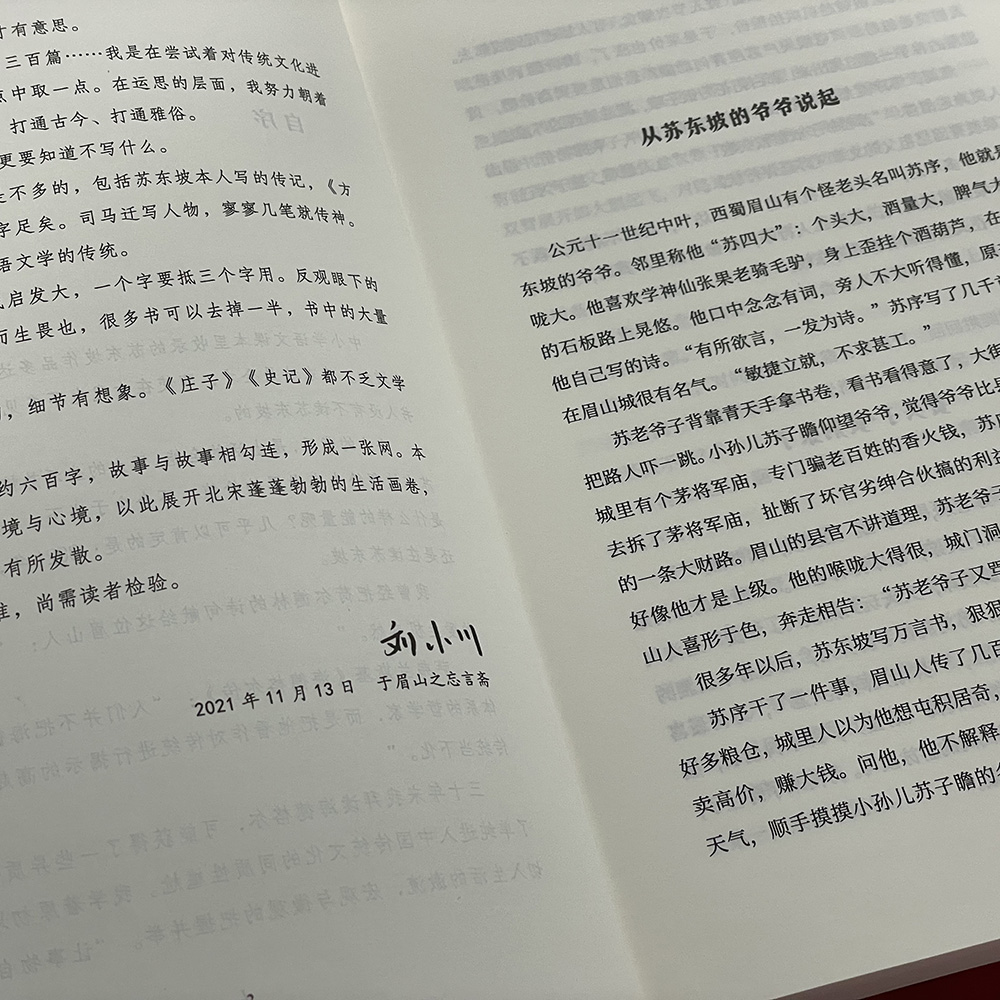 有意思。
三百篇……我是在尝试着对传统文化进
点中取一点。在运思的层面，我努力朝着
打通古今、打通雅俗。
更要知道不写什么。
不多的，包括苏东坡本人写的传记，《方
字足矣。司马迁写人物，寥寥几笔就传神。
语文学的传统。
启发大，一个字要抵三个字用。反观眼下的
而生畏也，很多书可以去掉一半，书中的大量
，细节有想象。《庄子》《史记》都不乏文学
约六百字，故事与故事相勾连，形成一张网。本
境与心境，以此展开北宋蓬蓬勃勃的生活画卷，
有所发散。
，尚需读者检验。
刘小川
2021年11月13日 于眉山之忘言斋
从苏东坡的爷爷说起
公元十一世纪中叶，西蜀眉山有个怪老头名叫苏序，他就是
东坡的爷爷。邻里称他“苏四大”：个头大，酒量大，脾气大
咙大。他喜欢学神仙张果老骑毛驴，身上歪挂个酒葫芦，在
的石板路上晃悠。他口中念念有词，旁人不大听得懂，原
他自己写的诗。“有所欲言，一发为诗。”苏序写了几千
在眉山城很有名气。“敏捷立就，不求甚工。”
苏老爷子背靠青天手拿书卷，看书看得意了，大街
把路人吓一跳。小孙儿苏子瞻仰望爷爷，觉得爷爷比
城里有个茅将军庙，专门骗老百姓的香火钱，苏
去拆了茅将军庙，扯断了坏官劣绅合伙搞的利益
的一条大财路。眉山的县官不讲道理，苏老爷子
好像他才是上级。他的喉咙大得很，城门洞
山人喜形于色，奔走相告：“苏老爷子又骂
很多年以后，苏东坡写万言书，狠狠
苏序干了一件事，眉山人传了几百
好多粮仓，城里人以为他想屯积居奇，
卖高价，赚大钱。问他，他不解释
天气，顺手摸摸小孙儿苏子瞻的